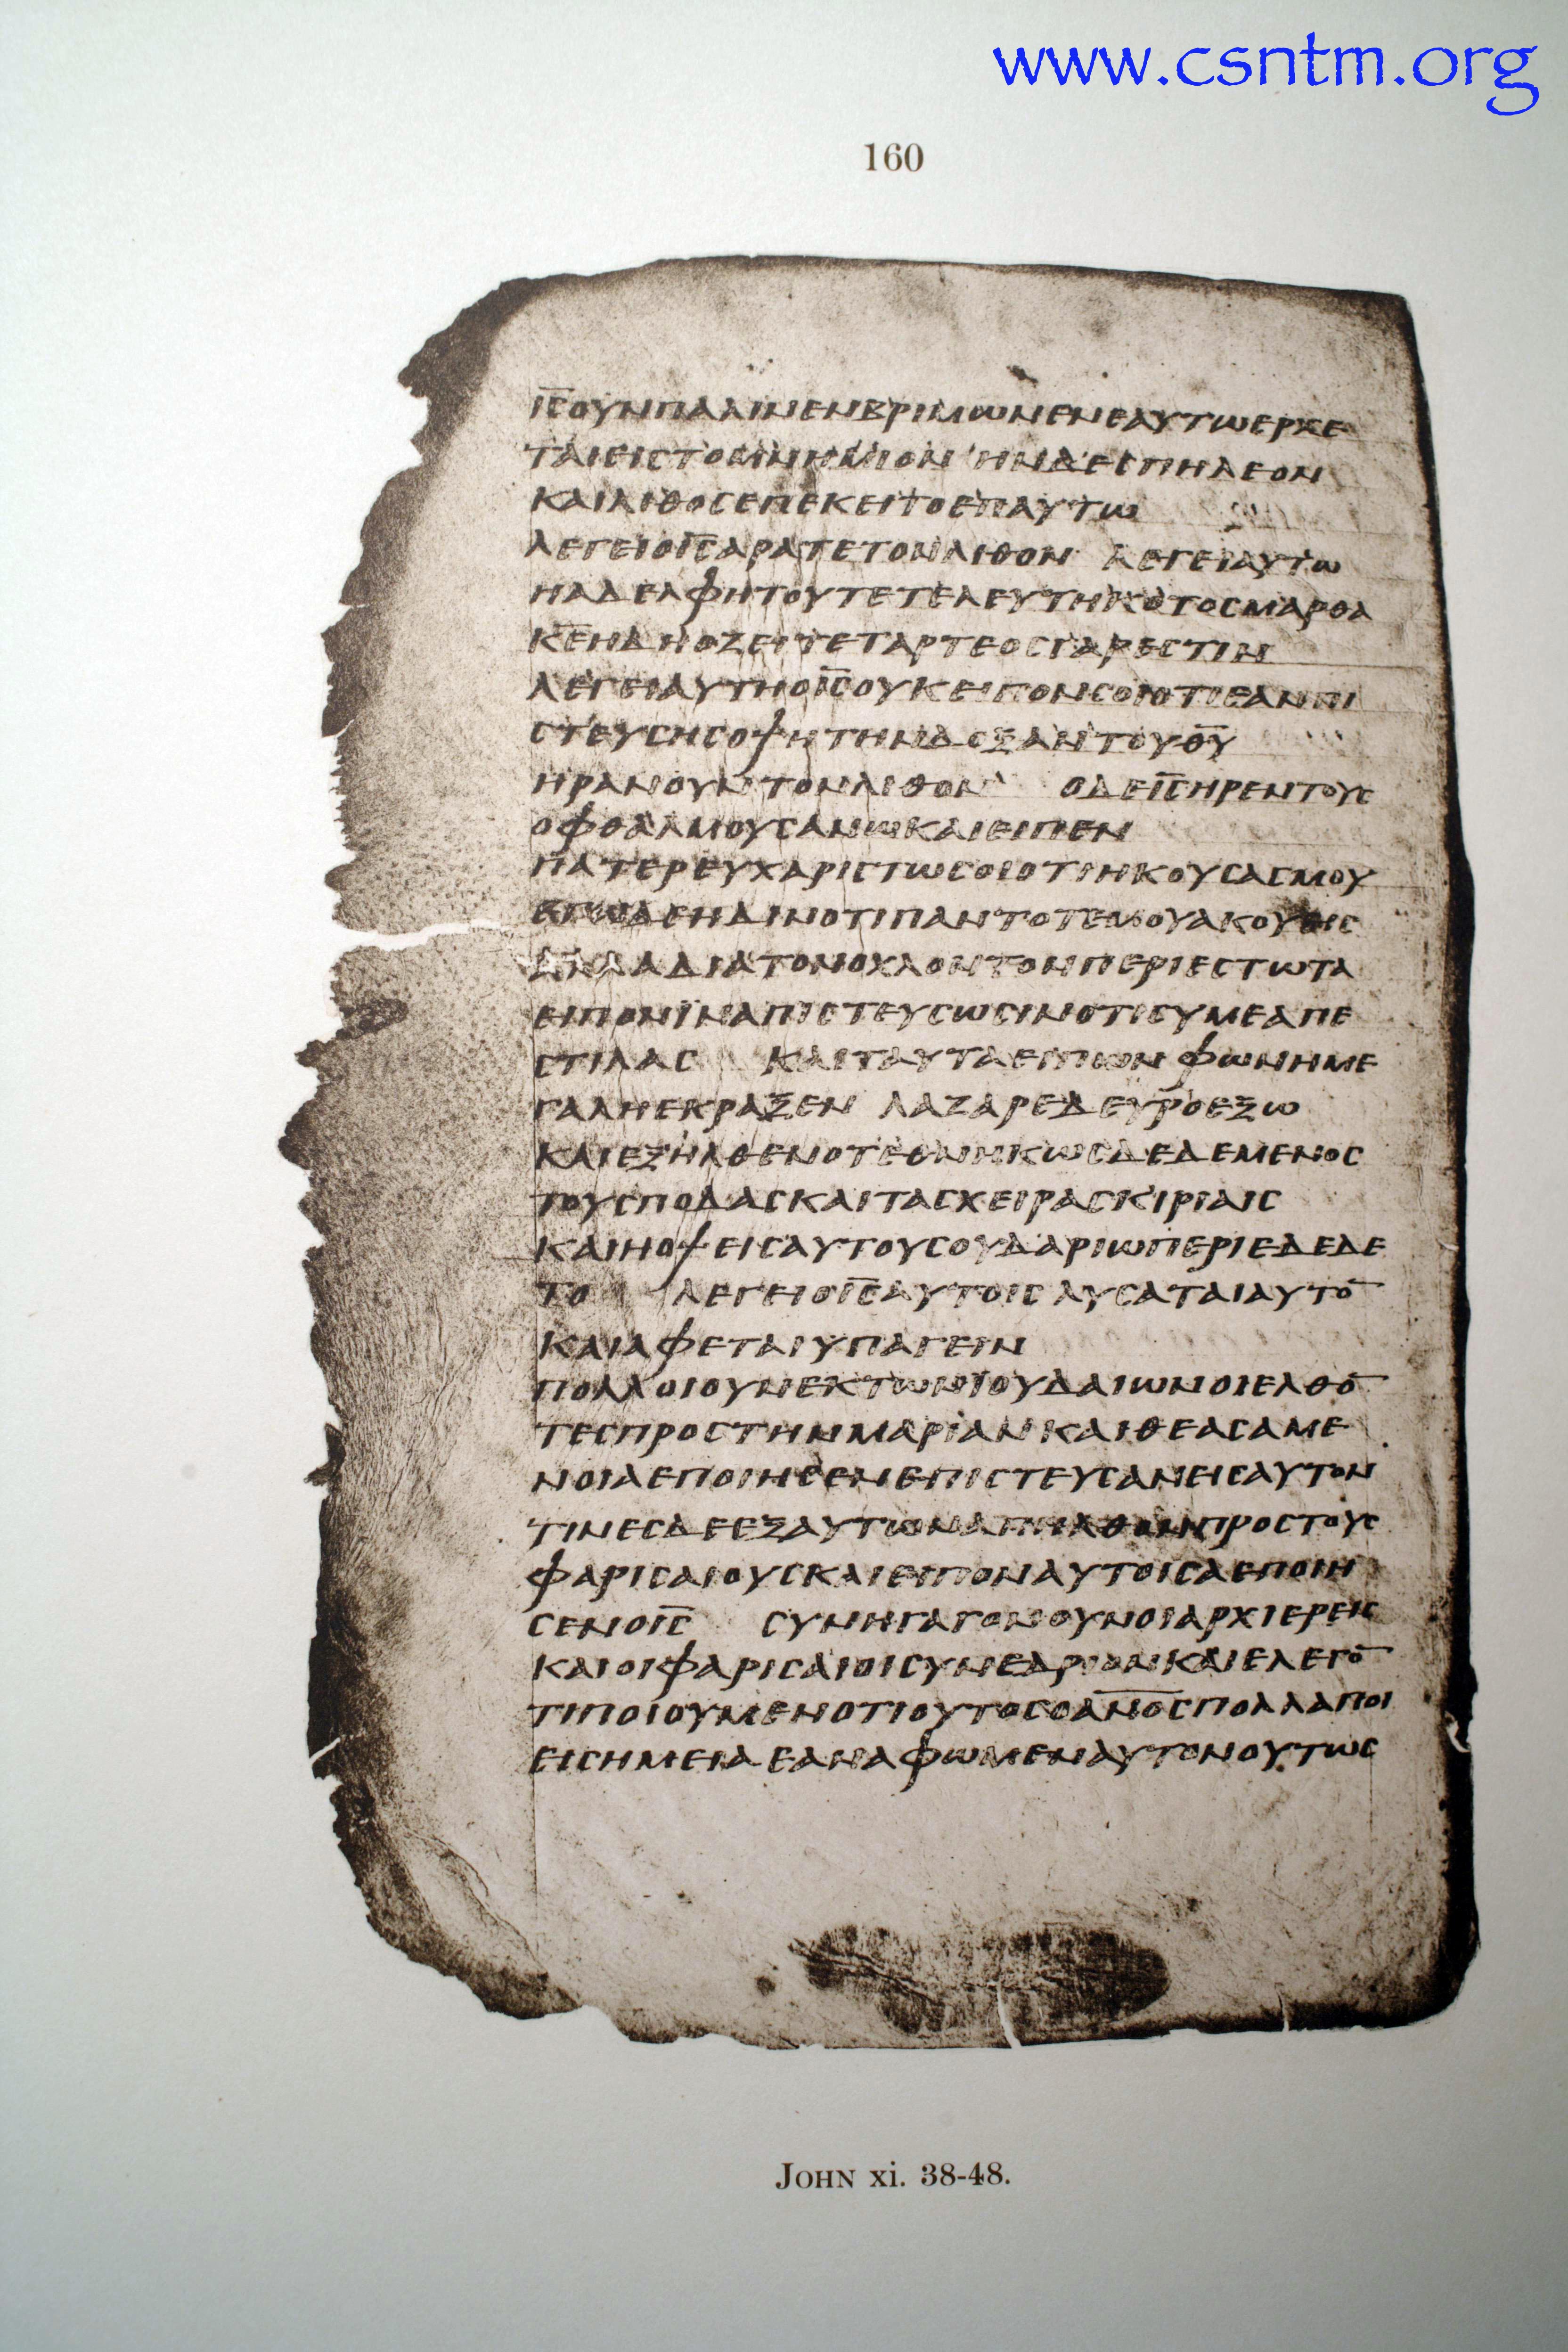 www.csntm.org
160
ΙC̅ΟΥΝΠΑΛΙΝΕΝΒΡΙΜΩΝΕΝΕΑΥΤΩΕΡΧΕ
ΤΑΙΕΙCΤΟΜΝΗΜΙΟΝ ΗΝΔΕCΠΗΛΕΟΝ
ΚΑΙΛΙΘΟCΕΠΕΚΕΙΤΟΕΠΑΥΤΩ
ΛΕΓΕΙΟΙC̅ΑΡΑΤΕΤΟΝΛΙΘΟΝ ΛΕΓΕΙΑΥΤΩ
ΗΑΔΕΛΦΗΤΟΥΤΕΤΕΛΕΥΤΗΚΟΤΟCΜΑΡΘΑ
ΚΕ̅ΗΔΗΟΖΕΙΤΕΤΑΡΤΕΟCΓΑΡΕCΤΙΝ
ΛΕΓΕΙΑΥΤΗΟΙC̅ΟΥΚΕΙΠΟΝCΟΙΟΤΙΕΑΝΠΙ
CΤΕΥCΗCΟΨΗΤΗΝΔΟΞΑΝΤΟΥΘΥ̅
ΗΡΑΝΟΥΝΤΟΝΛΙΘΟΝ ΟΔΕΙC̅ΗΡΕΝΤΟΥC
ΟΦΘΑΛΜΟΥCΑΝΩΚΑΙΕΙΠΕΝ
ΠΑΤΕΡΕΥΧΑΡΙCΤΩCΟΙΟΤΙΗΚΟΥCΑCΜΟΥ
ΕΓΩΔΕΗΔΙΝΟΤΙΠΑΝΤΟΤΕΜΟΥΑΚΟΥΕΙC
ΑΛΛΑΔΙΑΤΟΝΟΧΛΟΝΤΟΝΠΕΡΙΕCΤΩΤΑ
ΕΙΠΟΝΪΝΑΠΙCΤΕΥCΩCΙΝΟΤΙCΥΜΕΑΠΕ
CΤΙΛΑC ΚΑΙΤΑΥΤΑΕΙΠΩΝΦΩΝΗΜΕ
ΓΑΛΗΕΚΡΑΞΕΝ ΛΑΖΑΡΕΔΕΥΡΟΕΞΩ
ΚΑΙΕΞΗΛΘΕΝΟΤΕΘΝΗΚΩCΔΕΔΕΜΕΝΟC
ΤΟΥCΠΟΔΑCΚΑΙΤΑCΧΕΙΡΑCΚΙΡΙΑΙC
ΚΑΙΗΟΨΕΙCΑΥΤΟΥCΟΥΔΑΡΙΩΠΕΡΙΕΔΕΔΕ
ΤΟ ΛΕΓΕΙΟΙC̅ΑΥΤΟΙCΛΥCΑΤΑΙΑΥΤΟ̅
ΚΑΙΑΦΕΤΑΙΥΠΑΓΕΙΝ
ΠΟΛΛΟΙΟΥΝΕΚΤΩΝΪΟΥΔΑΙΩΝΟΙΕΛΘΟ̅
ΤΕCΠΡΟCΤΗΝΜΑΡΙΑΝΚΑΙΘΕΑCΑΜΕ
ΝΟΙΑΕΠΟΙΗCΕΝΕΠΙCΤΕΥCΑΝΕΙCΑΥΤΟΝ
ΤΙΝΕCΔΕΕΞΑΥΤΩΝΑΠΗΛΘΟΝΠΡΟCΤΟΥC
ΦΑΡΙCΑΙΟΥCΚΑΙΕΙΠΟΝΑΥΤΟΙCΑΕΠΟΙΗ
CΕΝΟΙC̅ CΥΝΗΓΑΓΟΝΟΥΝΟΙΑΡΧΙΕΡΕΙC
ΚΑΙΟΙΦΑΡΙCΑΙΟΙCΥΝΕΔΡΙΟΝΚΑΙΕΛΕΓΟ̅
ΤΙΠΟΙΟΥΜΕΝΟΤΙΟΥΤΟCΟΑΝ̅Ο̅CΠΟΛΛΑΠΟΙ
ΕΙCΗΜΕΙΑΕΑΝΑΦΩΜΕΝΑΥΤΟΝΟΥΤΩC
JOHN xi. 38-48.